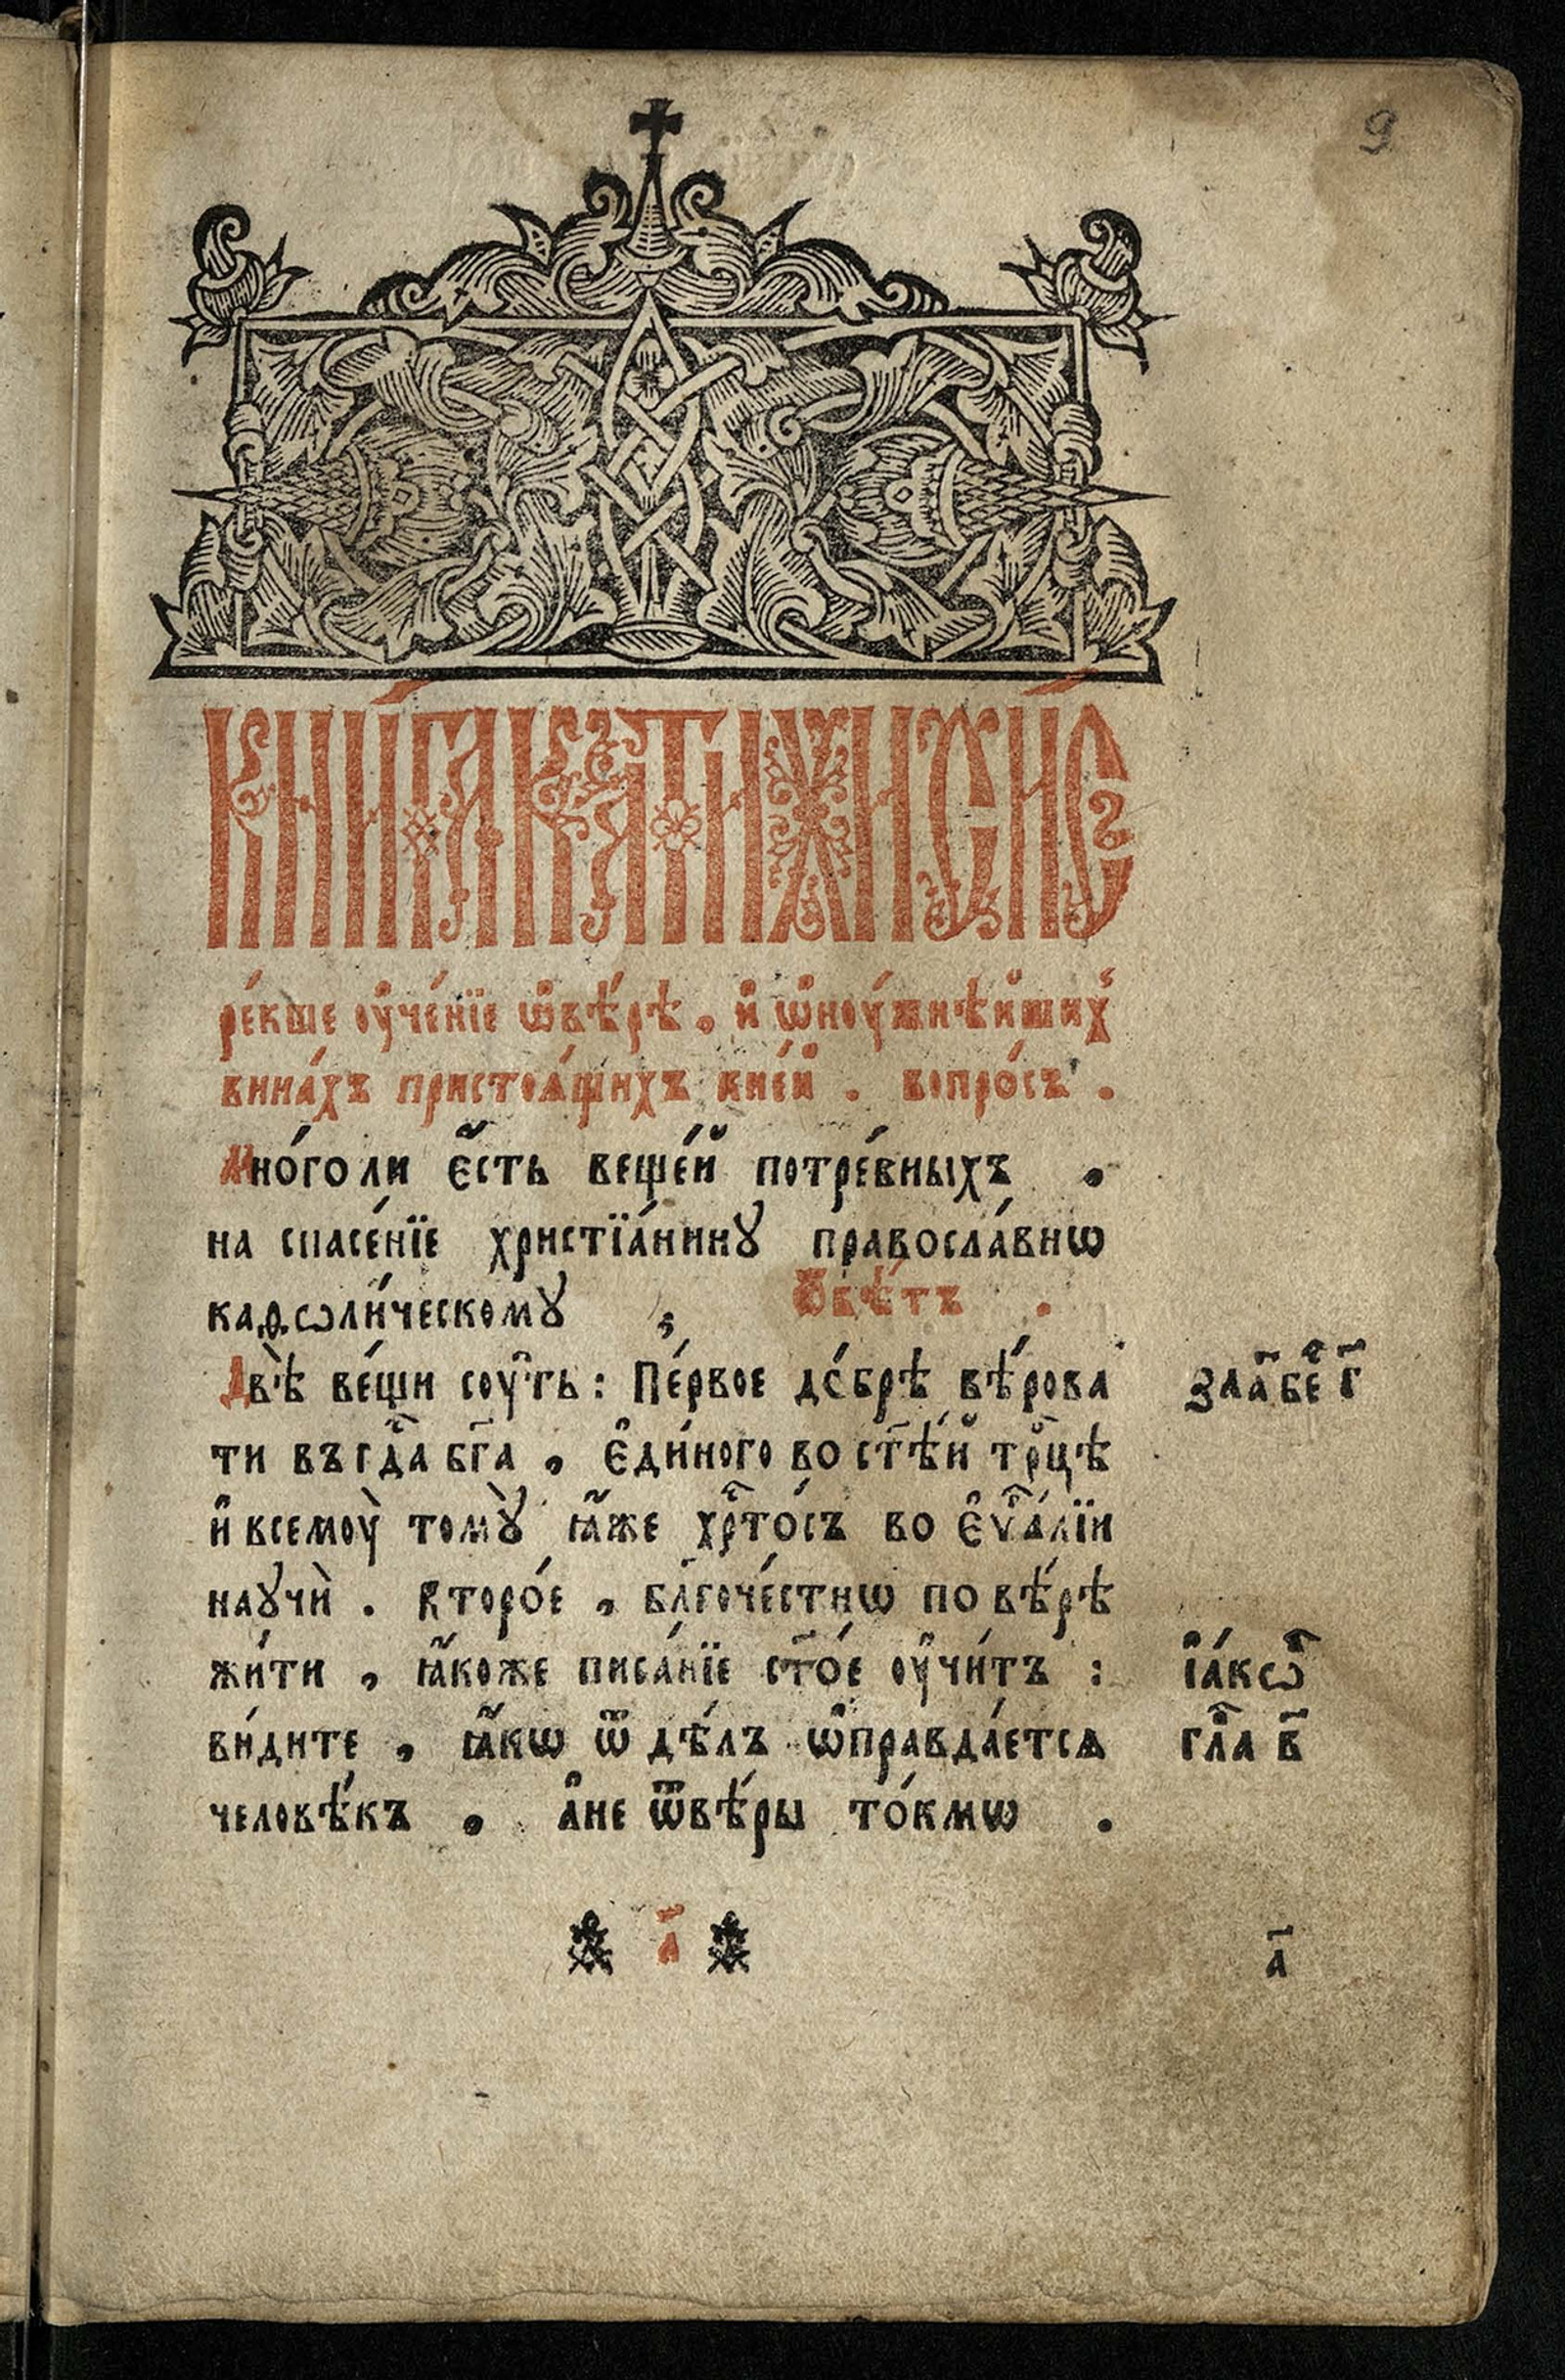 9
КНИ́ГА КАТИХИСИ́СЪ
ре́кше ᲂу҆че́нїе ѡ҆вѣ́рѣ . и҆ ѡ҆нꙋ́жнѣйшихꙿ
вина́хъ пристоѧ́щихъ кне́й . вопро́съ .
Мно́го ли є҆́сть веще́й потре́бныхъ ,
на спасе́нїе христїа́нинꙋ правосла́внѡ
каѳѡли́ческомꙋ ; Ѿвѣ́тъ .
Двѣ̀ ве́щи сᲂу҆́ть : Пе́рвое до́брѣ вѣ́рова
ти въ гдⷭ҇а бг҃а , є҆ди́ного во ст҃ѣ́й трⷪ҇цѣ
и҆ всемᲂу̀ томꙋ̀ ꙗ҆́же хрⷭ҇то́съ во є҆ѵⷢ҇а́лїи
наꙋчѝ . Второ́е , бл҃гоче́стнѡ по вѣ́рѣ
жи́ти , ꙗ҆́коже писа́нїе ст҃о́е ᲂу҆чи́тъ :
ви́дите , ꙗ҆́кѡ ѿ дѣ́лъ ѡ҆правда́етсѧ
человѣ́къ , а҆не ѿвѣ́ры то́кмѡ .
зла҃ бесⷣе г҃
і҆а́кѡⷡ
гл҃а в҃
а҃
а҃